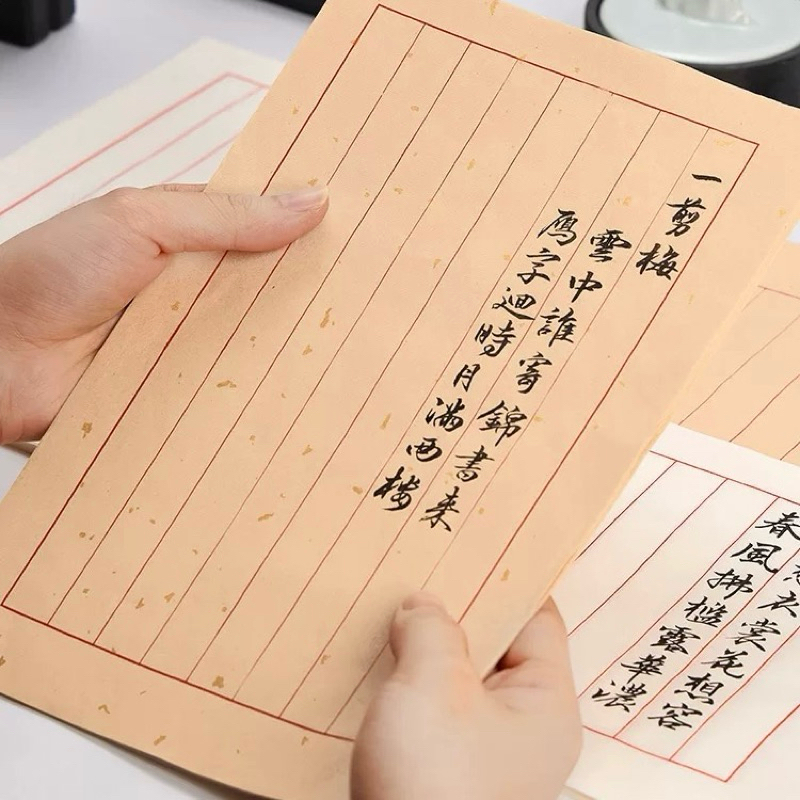 一剪梅
雲中誰寄錦書来
雁字迴時月滿西樓
衣裳花想容
春風拂檻露華濃